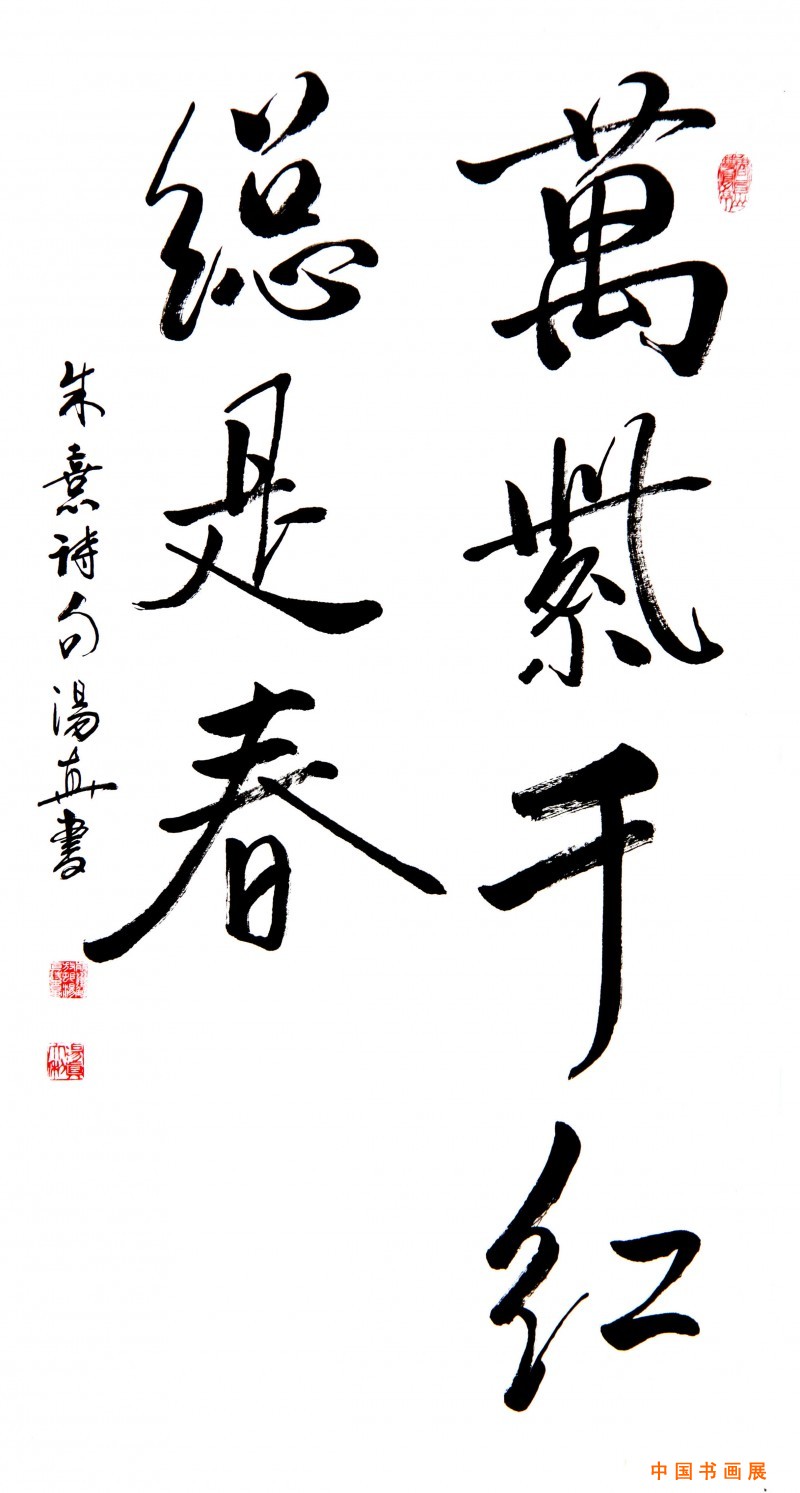 萬紫千红
總是春
朱熹詩句湯真書
湯真
中国书画展